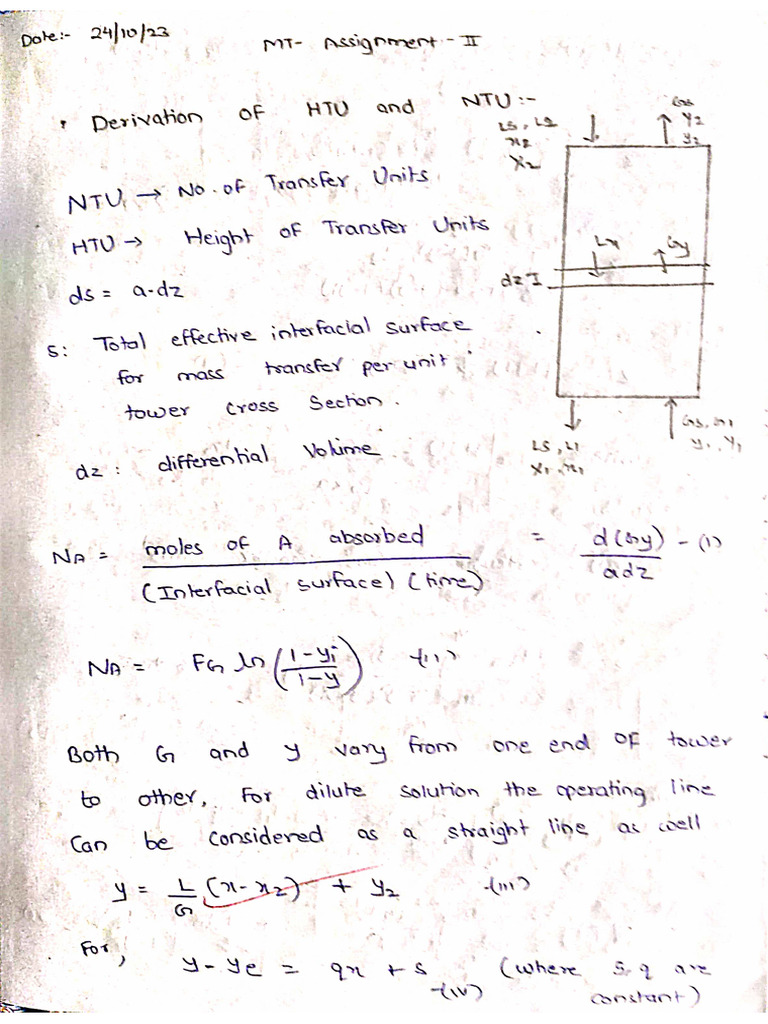 Date:- 24/10/23
MT- Assignment - II
Derivation of HTU and NTU :-
Gs
LS, L2 y2
x2 Y2
X2
NTU → No. of Transfer Units.
HTU → Height of Transfer Units
Lx Gy
ds = a.dz
dz I
S: Total effective interfacial surface
for mass transfer per unit
tower cross Section.
Gs, G1
LS, L1 y1, Y1
X1, x1
dz : differential Volume
NA = moles of A absorbed / (Interfacial surface) (time) = d(Gy) / adz - (I)
NA = FG ln (1-yi / 1-y) -(II)
Both G and y vary from one end of tower
to other, For dilute solution the operating line
Can be considered as a straight line as well
y = L/G (x-x2) + y2 -(III)
For,
y-ye = qx + s (where s, q are
-(IV) constant)